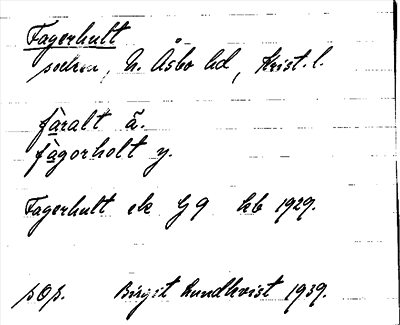 Fagerhult
socken, N. Åsbo hd, Krist. l.
fàralt ä.
fàgorholt y.
Fagerhult ek G 9 kb 1929.
sOs. Birgit Lundkvist 1939.